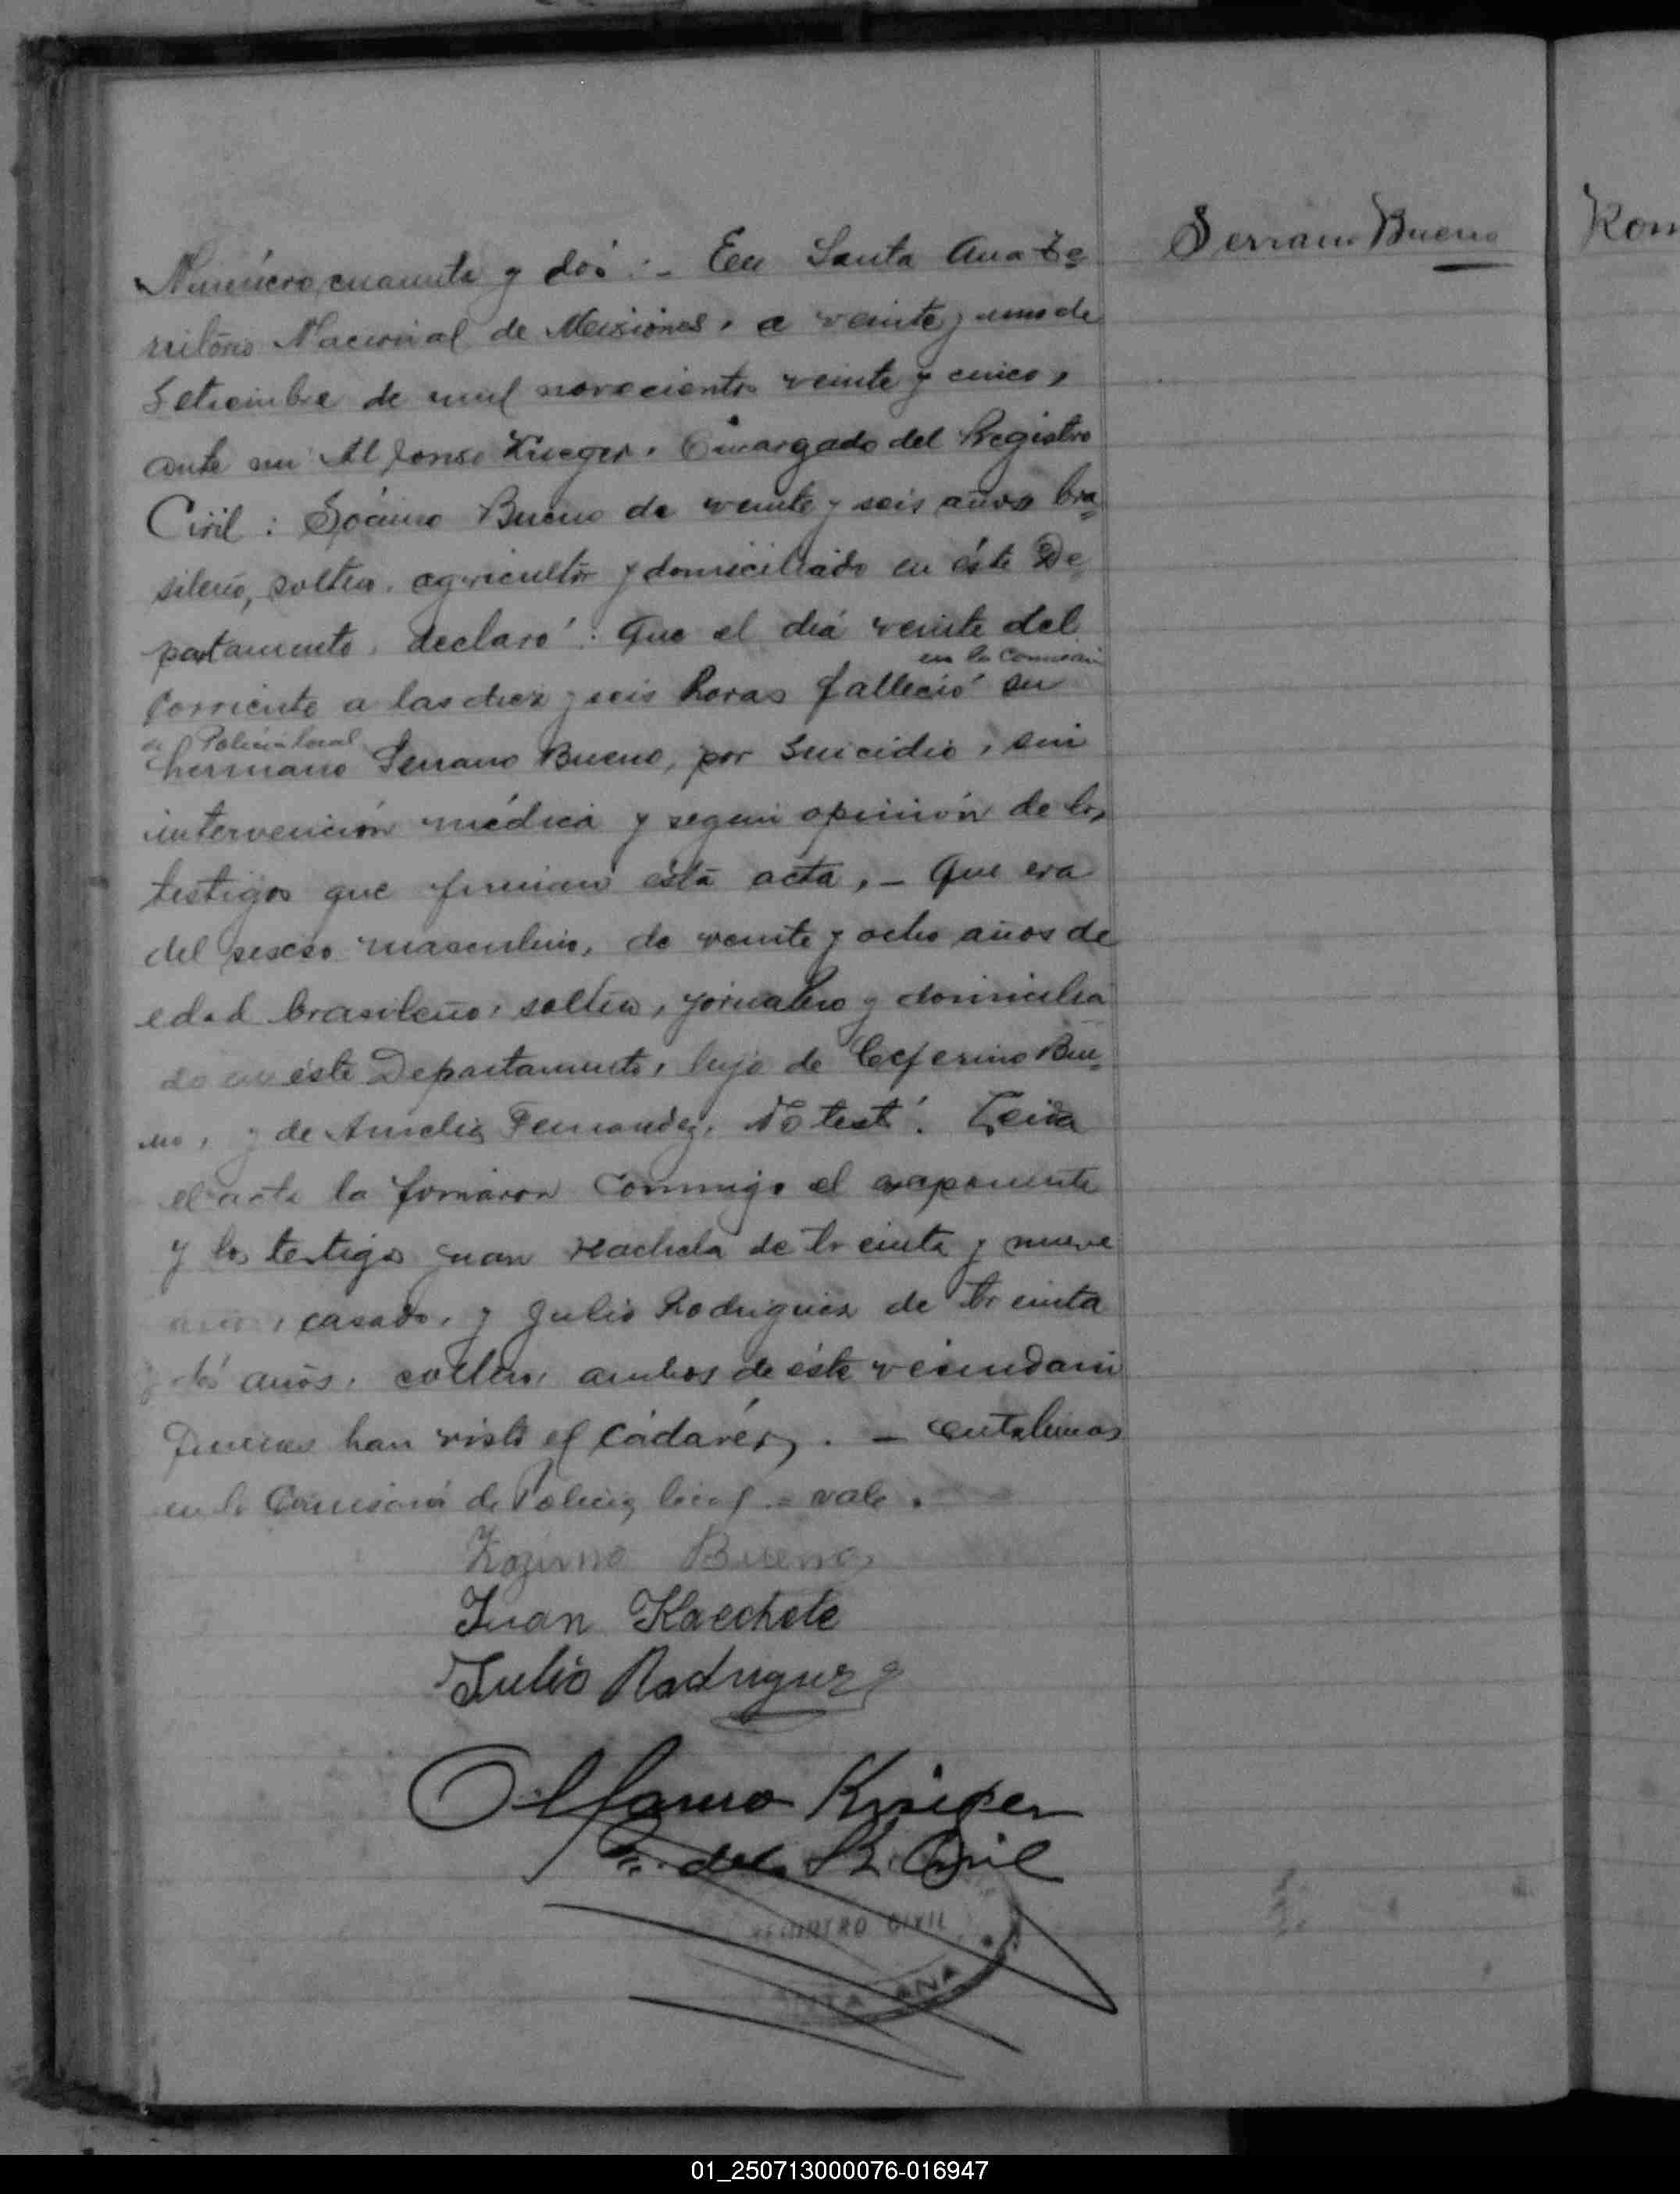 Serrano Bueno
Rom
Número cuarenta y dós:- En Santa Ana Te=
rritório Nacional de Misiones, a veinte y uno de
Setiembre de mil novecientos veinte y cinco,
ante mi Alfonso Krieger, Encargado del Registro
Civil: Sócimo Bueno de veinte y seis años bra=
sileño, soltero, agricultor y domiciliado en éste De=
partamento, declaró: Que el diá veinte del
en la Comisaria
corriente a las diez y seis horas falleció su
de Policia local
hermano Serrano Bueno, por Suicidio, sin
intervención médica y segun opinión de los
testigos que firman ésta acta, - Que era
del sexso masculino, de veinte y ocho años de
edad brasileño, soltero, jornalero y domicilia
do en éste Departamento, hijo de Ceferino Bue=
no, y de Amelia Fernandez. No testó. Leida
el acta la firmaron conmigo el exponente
y los testigos Juan Kachela de treinta y nueve
años, casado, y Julio Rodriguez de treinta
y dós años, soltero, ambos de éste vecindario
quienes han visto el cadáver. - Entrelineas
en la Comisaria de Policia local = vale.
Zozimo Bueno
Juan Kaechele
Julio Rodriguez
Alfonso Krieger
E. del R. Civil
REGISTRO CIVIL
SANTA ANA
01_250713000076-016947